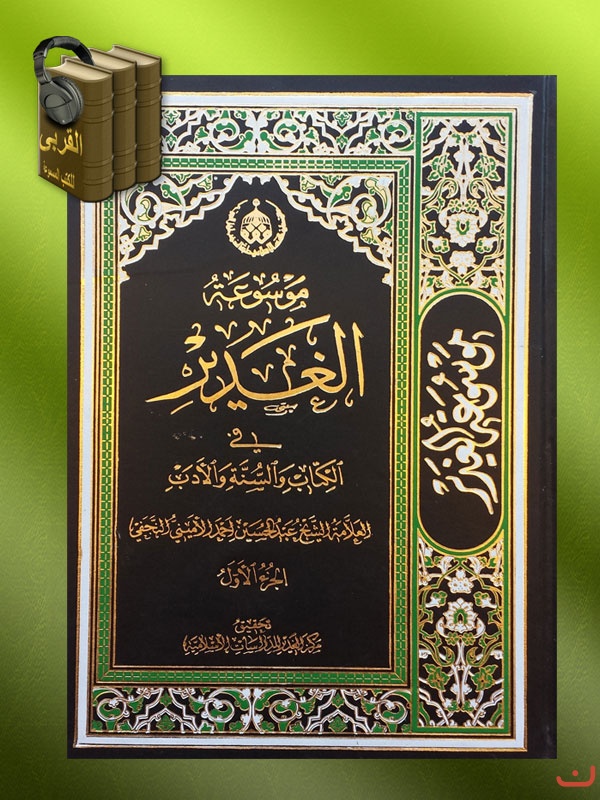 القربى
للكتب المسموعة
مَوسُوعَةُ
الغَدِيرِ
في
الكِتَابِ وَالسُّنَّةِ وَالأَدَبِ
العلامة الشيخ عبد الحسين أحمد الأميني النجفي
الجزء الأول
تحقيق
مركز الغدير للدراسات الإسلامية
موسوعة الغدير